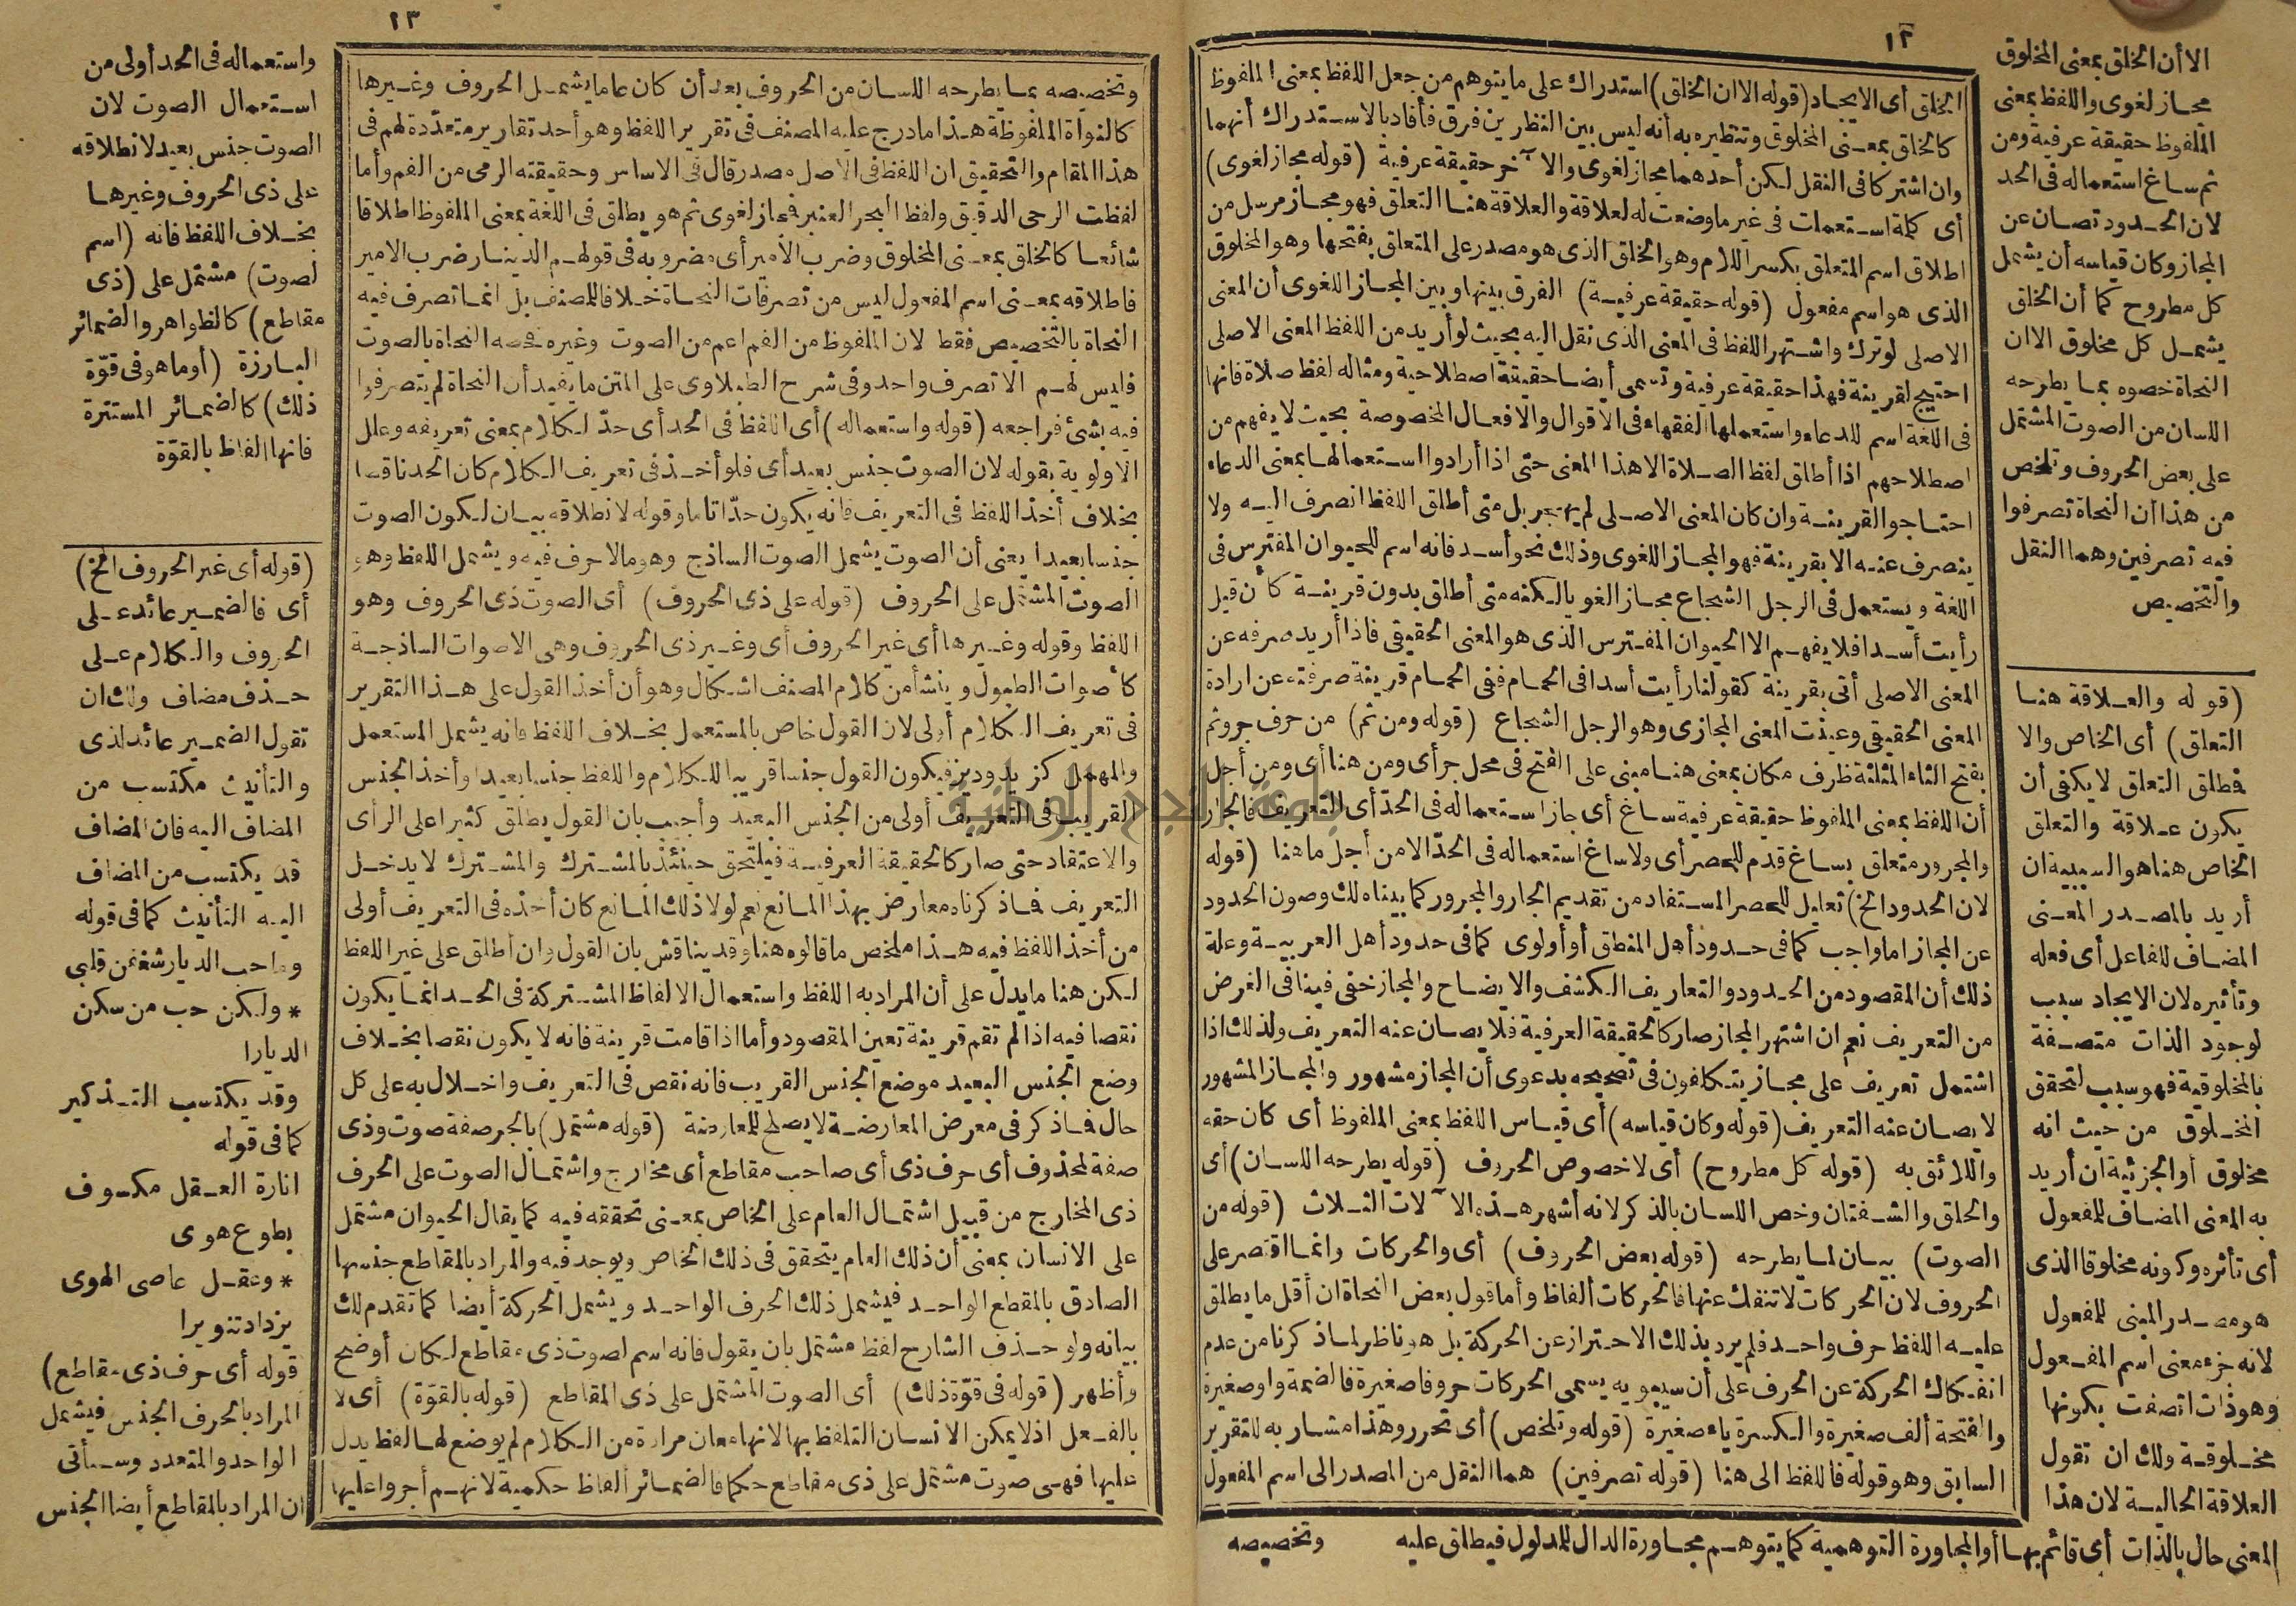 ١٢
الا أن الخلق بمعنى المخلوق
مجاز لغوى واللفظ بمعنى
الملفوظ حقيقة عرفية ومن
ثم ساغ استعماله فى الحد
لان الحدود تصان عن
المجاز وكان قياسه أن يشمل
كل مطروح كما أن الخلق
يشمل كل مخلوق الا ان
النحاة خصوه بما يطرحه
اللسان من الصوت المشتمل
على بعض الحروف وتلخص
من هذا أن النحاة تصرفوا
فيه تصرفين وهما النقل
والتخصيص
(قوله والعلاقة هنا
التعلق) أى الخاص والا
فمطلق التعلق لا يكفى أن
يكون علاقة والتعلق
الخاص هنا هو السببية ان
أريد بالمصدر المعنى
المضاف للفاعل أى فعله
وتأثيره لان الايجاد سبب
لوجود الذات متصفة
بالمخلوقية فهو سبب لتحقق
المخلوق من حيث انه
مخلوق أو الجزئية ان أريد
به المعنى المضاف للمفعول
أى تأثره وكونه مخلوقا الذى
هو مصدر المبنى للمفعول
لانه جزء معنى اسم المفعول
وهو ذات اتصفت بكونها
مخلوقة ولك ان تقول
العلاقة الحالية لان هذا
المعنى حال بالذات أى قائم بها أو المجاورة التوهمية كما يتوهم مجاورة الدال للمدلول فيطلق عليه
الخلق أى الايجاد (قوله الا ان الخلق) استدراك على ما يتوهم من جعل اللفظ بمعنى الملفوظ
كالخلق بمعنى المخلوق وتنظيره به أنه ليس بين النظرين فرق فأفاد بالاستدراك أنهما
وان اشتركا فى النقل لكن أحدهما مجاز لغوى والآخر حقيقة عرفية (قوله مجاز لغوى)
أى كلمة استعملت فى غير ما وضعت له لعلاقة والعلاقة هنا التعلق فهو مجاز مرسل من
اطلاق اسم المتعلق بكسر اللام وهو الخلق الذى هو مصدر على المتعلق بفتحها وهو المخلوق
الذى هو اسم مفعول (قوله حقيقة عرفية) الفرق بينها وبين المجاز اللغوى أن المعنى
الاصلى لو ترك واشتهر اللفظ فى المعنى الذى نقل اليه بحيث لو أريد من اللفظ المعنى الاصلى
احتيج لقرينة فهذا حقيقة عرفية وتسمى أيضا حقيقة اصطلاحية ومثاله لفظ صلاة فانها
فى اللغة اسم للدعاء واستعملها الفقهاء فى الاقوال والافعال المخصوصة بحيث لا يفهم من
اصطلاحهم اذا أطلق لفظ الصلاة الا هذا المعنى حتى اذا أرادوا استعمالها بمعنى الدعاء
احتاجوا لقرينة وان كان المعنى الاصلى لم يهجر بل متى أطلق اللفظ انصرف اليه ولا
ينصرف عنه الا بقرينة فهو المجاز اللغوى وذلك نحو أسد فانه اسم للحيوان المفترس فى
اللغة ويستعمل فى الرجل الشجاع مجازا لغويا لكنه متى أطلق بدون قرينة كأن قيل
رأيت أسدا فلا يفهم الا الحيوان المفترس الذى هو المعنى الحقيقى فاذا أريد صرفه عن
المعنى الاصلى أتى بقرينة كقولنا رأيت أسدا فى الحمام ففى الحمام قرينة صرفته عن ارادة
المعنى الحقيقى وعينت المعنى المجازى وهو الرجل الشجاع (قوله ومن ثم) من حرف جر وثم
بفتح الثاء المثلثة ظرف مكان بمعنى هنا مبنى على الفتح فى محل جر أى ومن هنا أى ومن أجل
أن اللفظ بمعنى الملفوظ حقيقة عرفية ساغ أى جاز استعماله فى الحد أى التعريف فالجار
والمجرور متعلق بساغ قدم للحصر أى ولا ساغ استعماله فى الحد الا من أجل ما هنا (قوله
لان الحدود الخ) تعليل للحصر المستفاد من تقديم الجار والمجرور كما بيناه لك وصون الحدود
عن المجاز اما واجب كما فى حدود أهل المنطق أو أولوى كما فى حدود أهل العربية وعلة
ذلك أن المقصود من الحدود والتعاريف الكشف والايضاح والمجاز خفى فينا فى الغرض
من التعريف نعم ان اشتهر المجاز صار كالحقيقة العرفية فلا يصان عنه التعريف ولذلك اذا
اشتمل تعريف على مجاز يتكلفون فى تصحيحه بدعوى أن المجاز مشهور والمجاز المشهور
لا يصان عنه التعريف (قوله وكان قياسه) أى قياس اللفظ بمعنى الملفوظ أى كان حقه
واللائق به (قوله كل مطروح) أى لا خصوص الحروف (قوله يطرحه اللسان) أى
والحلق والشفتان وخص اللسان بالذكر لانه أشهر هذه الآلات الثلاث (قوله من
الصوت) بيان لما يطرحه (قوله بعض الحروف) أى والحركات وانما اقتصر على
الحروف لان الحركات لا تنفك عنها فالحركات ألفاظ وأما قول بعض النحاة ان أقل ما يطلق
عليه اللفظ حرف واحد فلم يرد بذلك الاحتراز عن الحركة بل هو ناظر لما ذكرنا من عدم
انفكاك الحركة عن الحرف على أن سيبويه يسمى الحركات حروفا صغيرة فالضمة واو صغيرة
والفتحة ألف صغيرة والكسرة ياء صغيرة (قوله وتلخص) أى تحرر وهذا مشار به للتقرير
السابق وهو قوله فاللفظ الى هنا (قوله تصرفين) هما النقل من المصدر الى اسم المفعول
وتخصيصه
١٣
وتخصيصه بما يطرحه اللسان من الحروف بعد أن كان عاما يشمل الحروف وغيرها
كالنواة الملفوظة هذا ما درج عليه المصنف فى تقرير اللفظ وهو أحد تقارير متعددة لهم فى
هذا المقام والتحقيق ان اللفظ فى الاصل مصدر قال فى الاساس وحقيقته الرمى من الفم وأما
لفظت الرحى الدقيق ولفظ البحر العنبر فمجاز لغوى ثم هو يطلق فى اللغة بمعنى الملفوظ اطلاقا
شائعا كالخلق بمعنى المخلوق وضرب الأمير أى مضروبه فى قولهم الدينار ضرب الامير
فاطلاقه بمعنى اسم المفعول ليس من تصرفات النحاة خلافا للمصنف بل انما تصرف فيه
النحاة بالتخصيص فقط لان الملفوظ من الفم اعم من الصوت وغيره فخصه النحاة بالصوت
فليس لهم الا تصرف واحد وفى شرح الطبلاوى على المتن ما يفيد أن النحاة لم يتصرفوا
فيه بشئ فراجعه (قوله واستعماله) أى اللفظ فى الحد أى حد الكلام بمعنى تعريفه وعلل
الاولوية بقوله لان الصوت جنس بعيد أى فلو أخذ فى تعريف الكلام كان الحد ناقصا
بخلاف أخذ اللفظ فى التعريف فانه يكون حدا تاما وقوله لانطلاقه بيان لكون الصوت
جنسا بعيدا يعنى أن الصوت يشمل الصوت الساذج وهو ما لا حرف فيه ويشمل اللفظ وهو
الصوت المشتمل على الحروف (قوله على ذى الحروف) أى الصوت ذى الحروف وهو
اللفظ وقوله وغيرها أى غير الحروف أى وغير ذى الحروف وهى الاصوات الساذجة
كأصوات الطبول وينشأ من كلام المصنف اشكال وهو أن أخذ القول على هذا التقرير
فى تعريف الكلام أولى لان القول خاص بالمستعمل بخلاف اللفظ فانه يشمل المستعمل
والمهمل كزيد وديز فيكون القول جنسا قريبا للكلام واللفظ جنسا بعيدا وأخذ الجنس
القريب فى التعريف أولى من الجنس البعيد وأجيب بان القول يطلق كثيرا على الرأى
والاعتقاد حتى صار كالحقيقة العرفية فيلتحق حينئذ بالمشترك والمشترك لا يدخل
التعريف فما ذكرناه معارض بهذا المانع نعم لولا ذلك المانع كان أخذه فى التعريف أولى
من أخذ اللفظ فيه هذا ملخص ما قالوه هنا وقد يناقش بان القول وان أطلق على غير اللفظ
لكن هنا ما يدل على أن المراد به اللفظ واستعمال الالفاظ المشتركة فى الحد انما يكون
نقصا فيه اذا لم تقم قرينة تعين المقصود وأما اذا قامت قرينة فانه لا يكون نقصا بخلاف
وضع الجنس البعيد موضع الجنس القريب فانه نقص فى التعريف واخلال به على كل
حال فما ذكر فى معرض المعارضة لا يصلح للمعارضة (قوله مشتمل) بالجر صفة صوت وذى
صفة لمحذوف أى حرف ذى أى صاحب مقاطع أى مخارج واشتمال الصوت على الحرف
ذى المخارج من قبيل اشتمال العام على الخاص بمعنى تحققه فيه كما يقال الحيوان مشتمل
على الانسان بمعنى أن ذلك العام يتحقق فى ذلك الخاص ويوجد فيه والمراد بالمقاطع جنسها
الصادق بالمقطع الواحد فيشمل ذلك الحرف الواحد ويشمل الحركة أيضا كما تقدم لك
بيانه ولو حذف الشارح لفظ مشتمل بان يقول فانه اسم لصوت ذى مقاطع لكان أوضح
وأظهر (قوله فى قوة ذلك) أى الصوت المشتمل على ذى المقاطع (قوله بالقوة) أى لا
بالفعل اذ لا يمكن الانسان التلفظ بها لانها معان مرادة من الكلام لم يوضع لها لفظ يدل
عليها فهى صوت مشتمل على ذى مقاطع حكما فالضمائر ألفاظ حكمية لانهم أجروا عليها
واستعماله فى الحد أولى من
استعمال الصوت لان
الصوت جنس بعيد لانطلاقه
على ذى الحروف وغيرها
بخلاف اللفظ فانه (اسم
لصوت) مشتمل على (ذى
مقاطع) كالظواهر والضمائر
البارزة (أو ما هو فى قوة
ذلك) كالضمائر المستترة
فانها الفاظ بالقوة
(قوله أى غير الحروف الخ)
أى فالضمير عائد على
الحروف والكلام على
حذف مضاف ولك ان
تقول الضمير عائد لذى
والتأنيث مكتسب من
المضاف اليه فان المضاف
قد يكتسب من المضاف
اليه التأنيث كما فى قوله
وما حب الديار شغفن قلبى
* ولكن حب من سكن
الديارا
وقد يكتسب التذكير
كما فى قوله
انارة العقل مكسوف
بطوع هوى
* وعقل عاصى الهوى
يزداد تنويرا
قوله أى حرف ذى مقاطع)
المراد بالحرف الجنس فيشمل
الواحد والمتعدد وسيأتى
ان المراد بالمقاطع أيضا الجنس
جامعة النجاح الوطنية